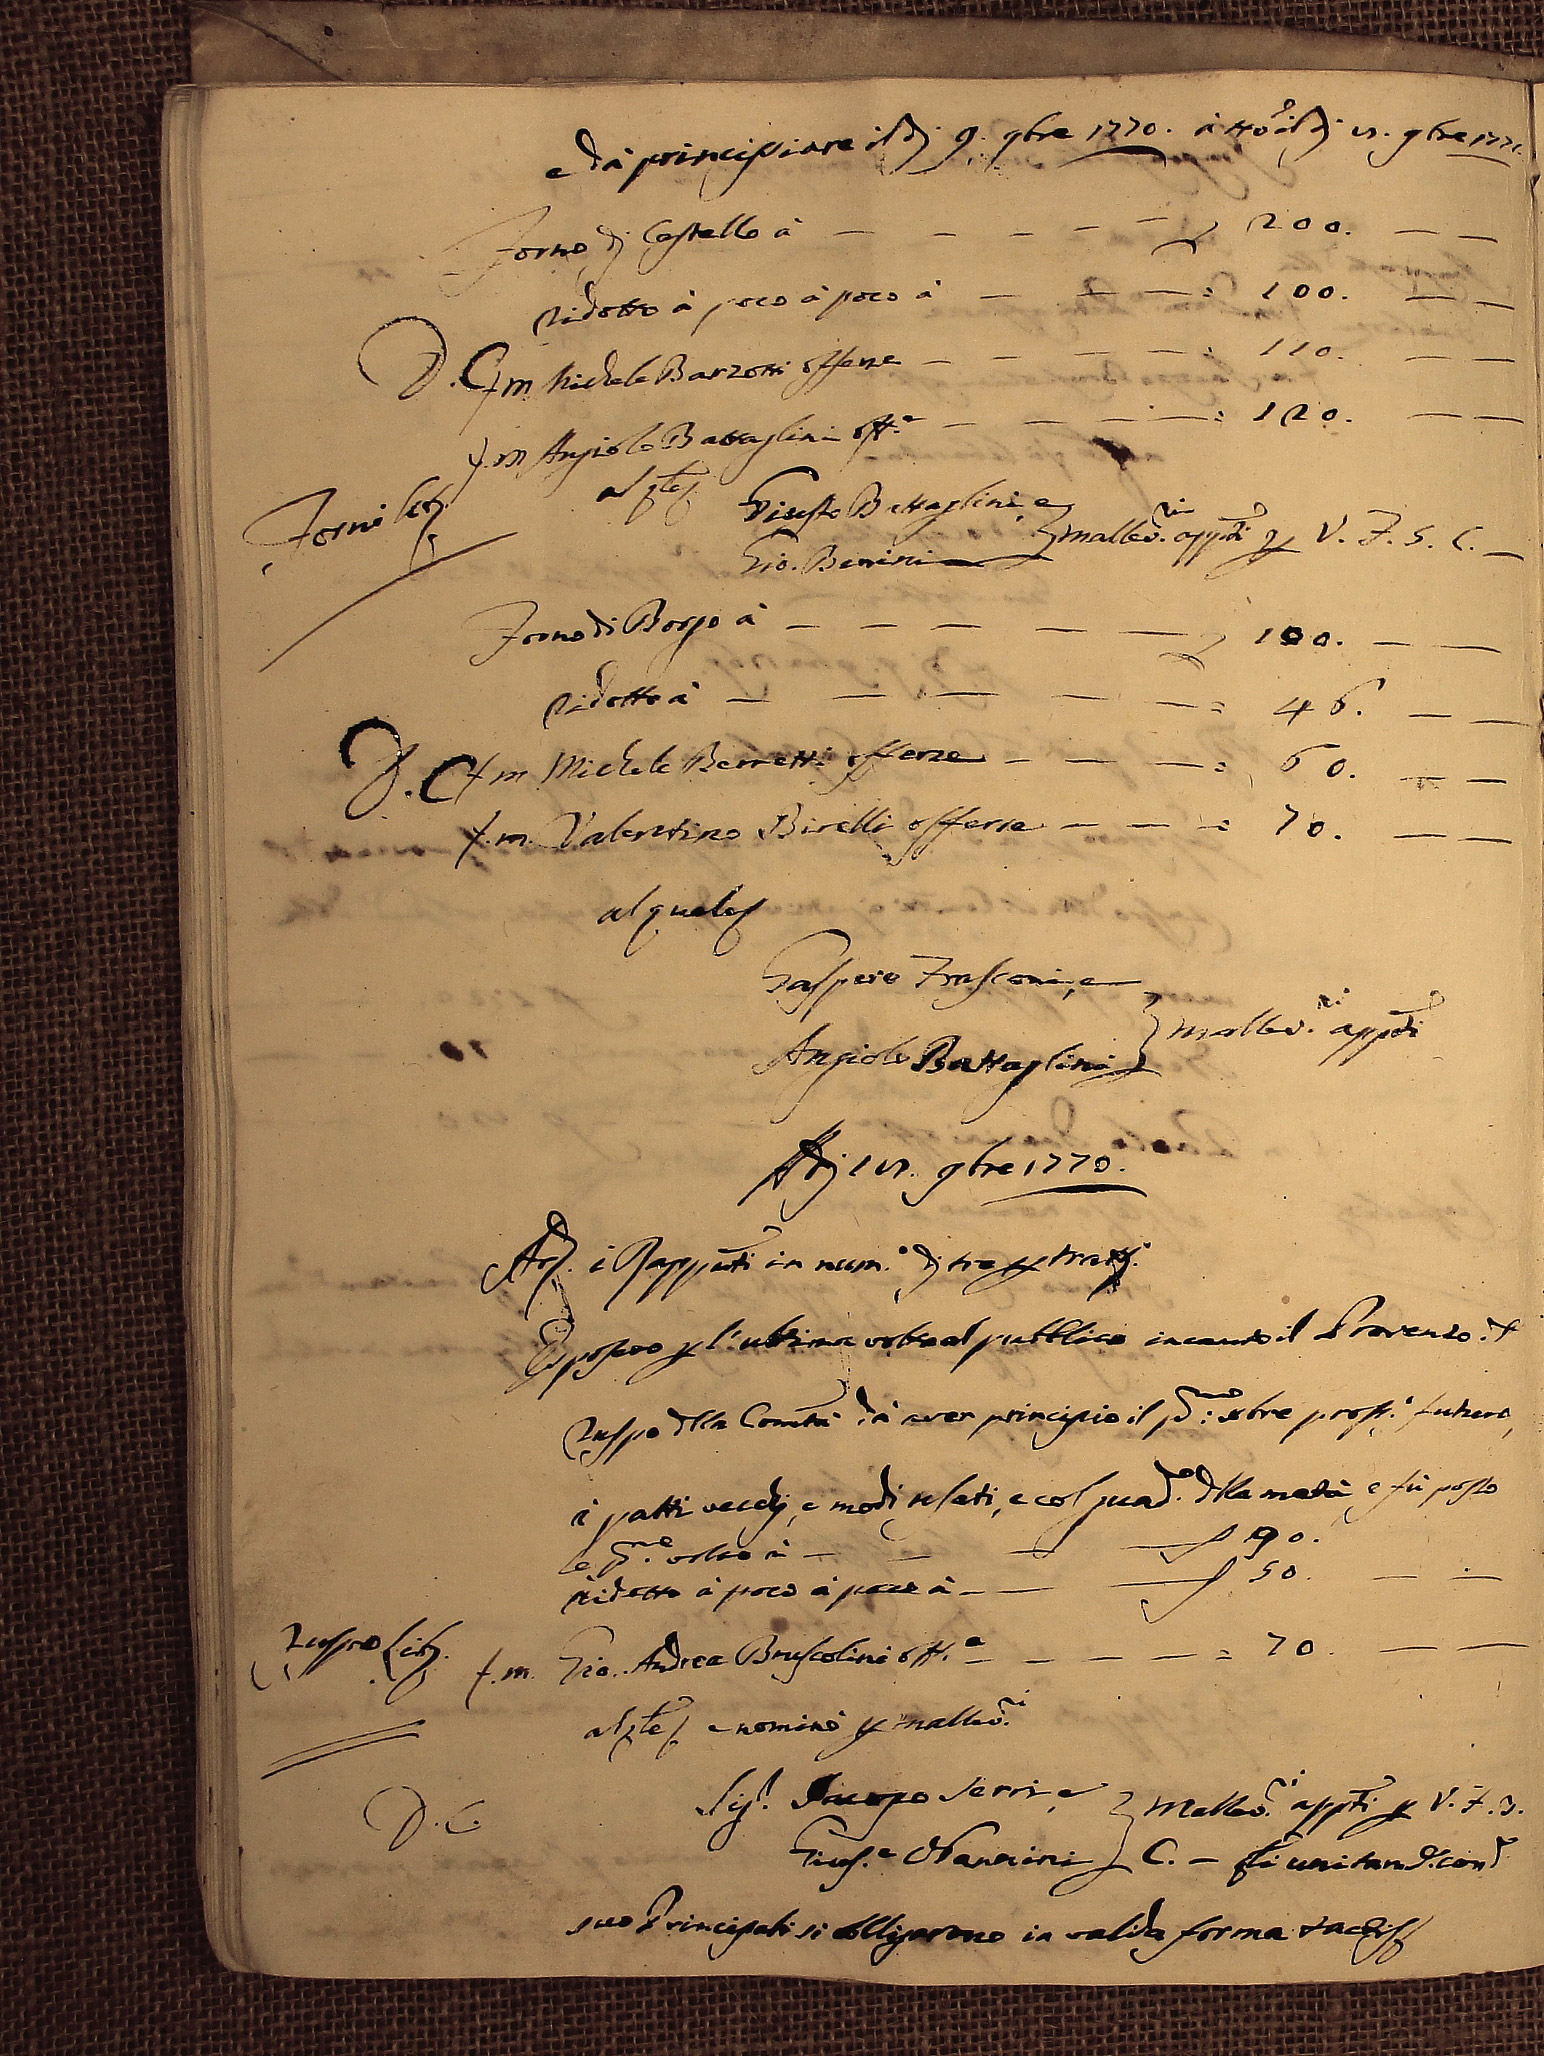 e dà principiare il dj 9. 9bre 1770. à tto il dj 9bre 1771.
Forno dj Castello à 200.
ridotto à poco à poco à = 100.
D. C. f.m Michele Barzotti offerse = 110.
f.m Angiolo Battaglini off.e = 120.
al qle
Giusto Battaglini, e
Forni
Gio. Bernini } mallev.ri app.ti p V. F. S. C.
Forno di Borgo à 100.
ridotto à = 46.
D. C. f.m Michele Berretti offerse = 60.
f.m. Valentino Birelli offerse = 70.
al quale
Gaspero Frasconi, e
Angiolo Battaglini } mallev.ri app.ti
Adj 9bre 1770.
Ad. i Rapp.ti in num.o dj tre p tratt.
Esposto p l'ultima volta al pubblico incanto il Provento
Ruspo dlla Com.tà dà aver principio il p.mo xbre pross.o futuro,
i patti vecchj, e modi usati, e col dlla metà e fù posto
e volta à 90.
ridotto à poco à poco à 50.
Ruspo
f.m. Gio. Andrea Bruscolini off.e = 70.
al qle e nominò p mallev.ri
Sig.r Jacopo Serri, e
D. C.
} Mallev.ri app.ti p V. F. S.
Gius.e Nannini } C. – li unitam. con
suo Principale si obbligarono in valida forma